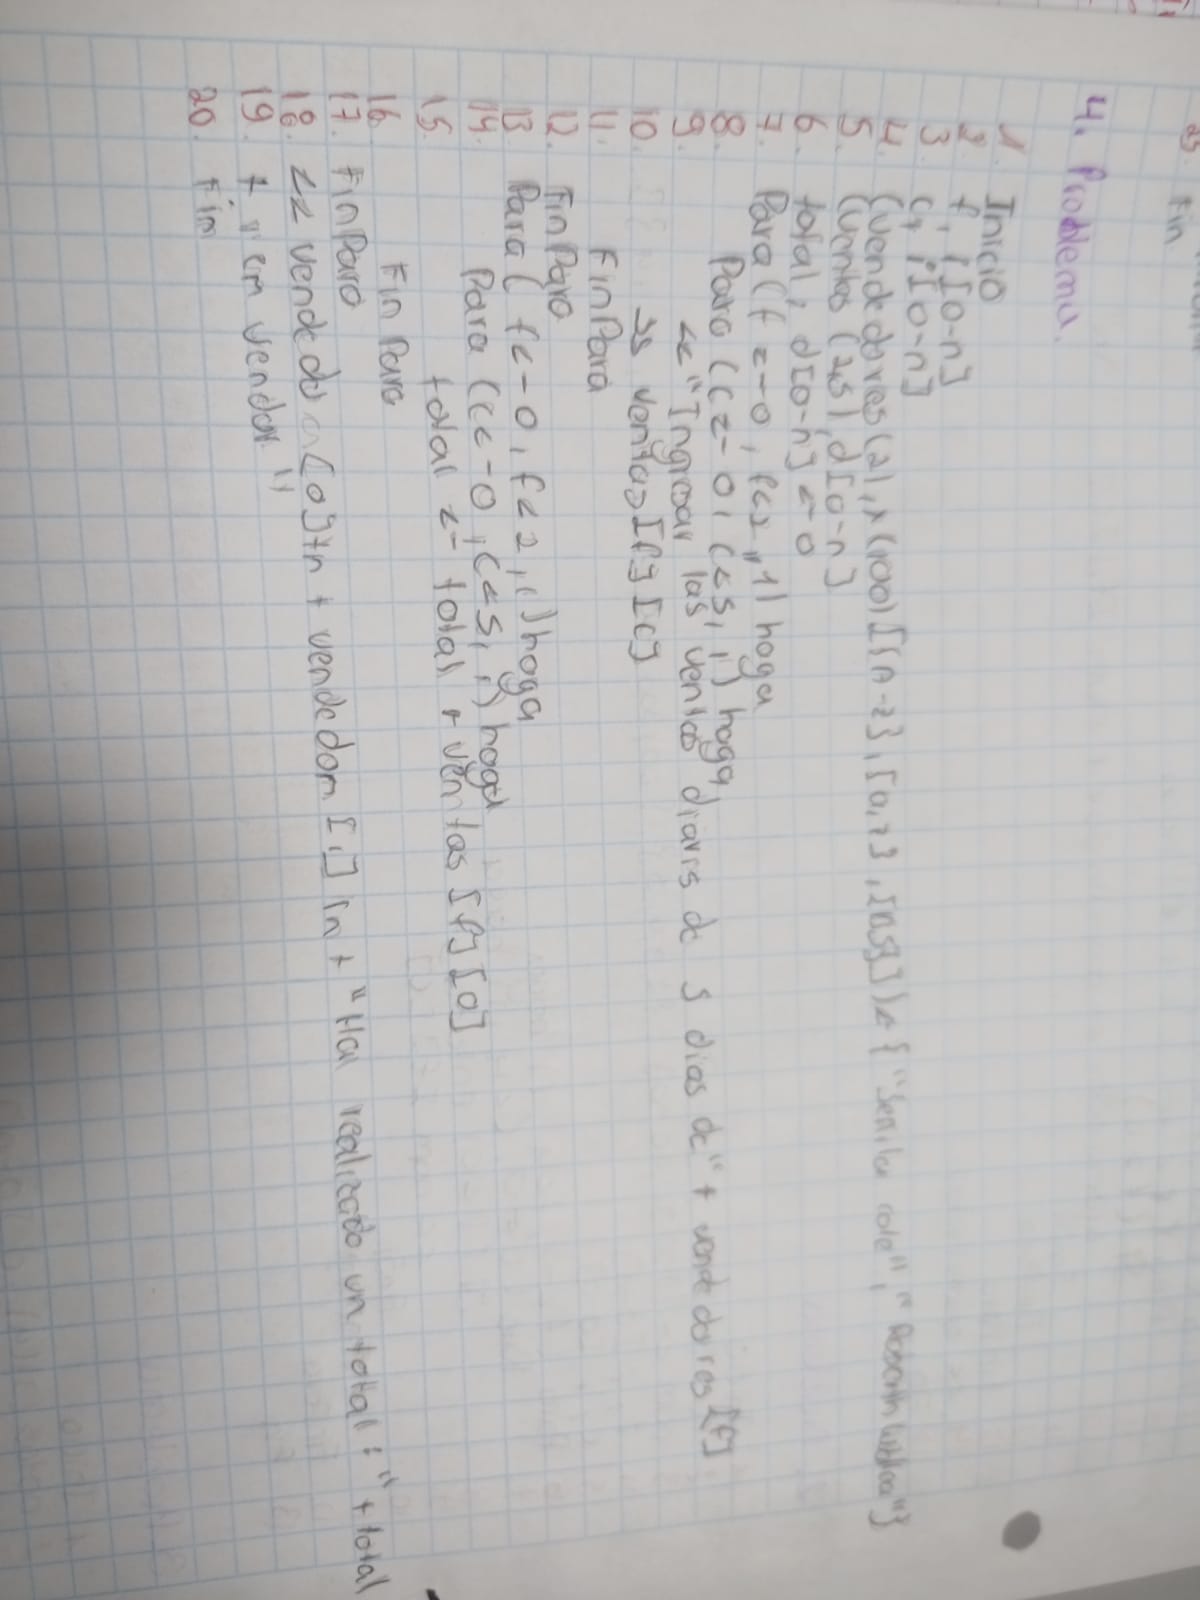 Fin
4. Problema.
1 Inicio
2 f, i[0-n]
3. c, i[0-n]
4. (vendedores(2), x(100)[[A-z], [a,z],
5. (ventas (2,5), d[0-n]
6. total, d[0-n] <- 0
7. Para (f <- 0, f<2, 1) haga
8. Para (c <- 0, c<5, 1) haga
9. << "Ingresar las ventas diaris de 5 dias de" + vendedores [f]
10. >> ventas [f] [c]
11. Fin Para
12. Fin Para
13 Para (f <- 0, f<2, 1) haga
14. Para (c<-0, c<5, 1) haga
15. total <- total + ventas [f] [0]
16. Fin Para
17. Fin Para
18. << vendedor [0]+n + vendedom [1] [n + "Ha realizado un total:" + total
19. + "em vendor"
20. Fim